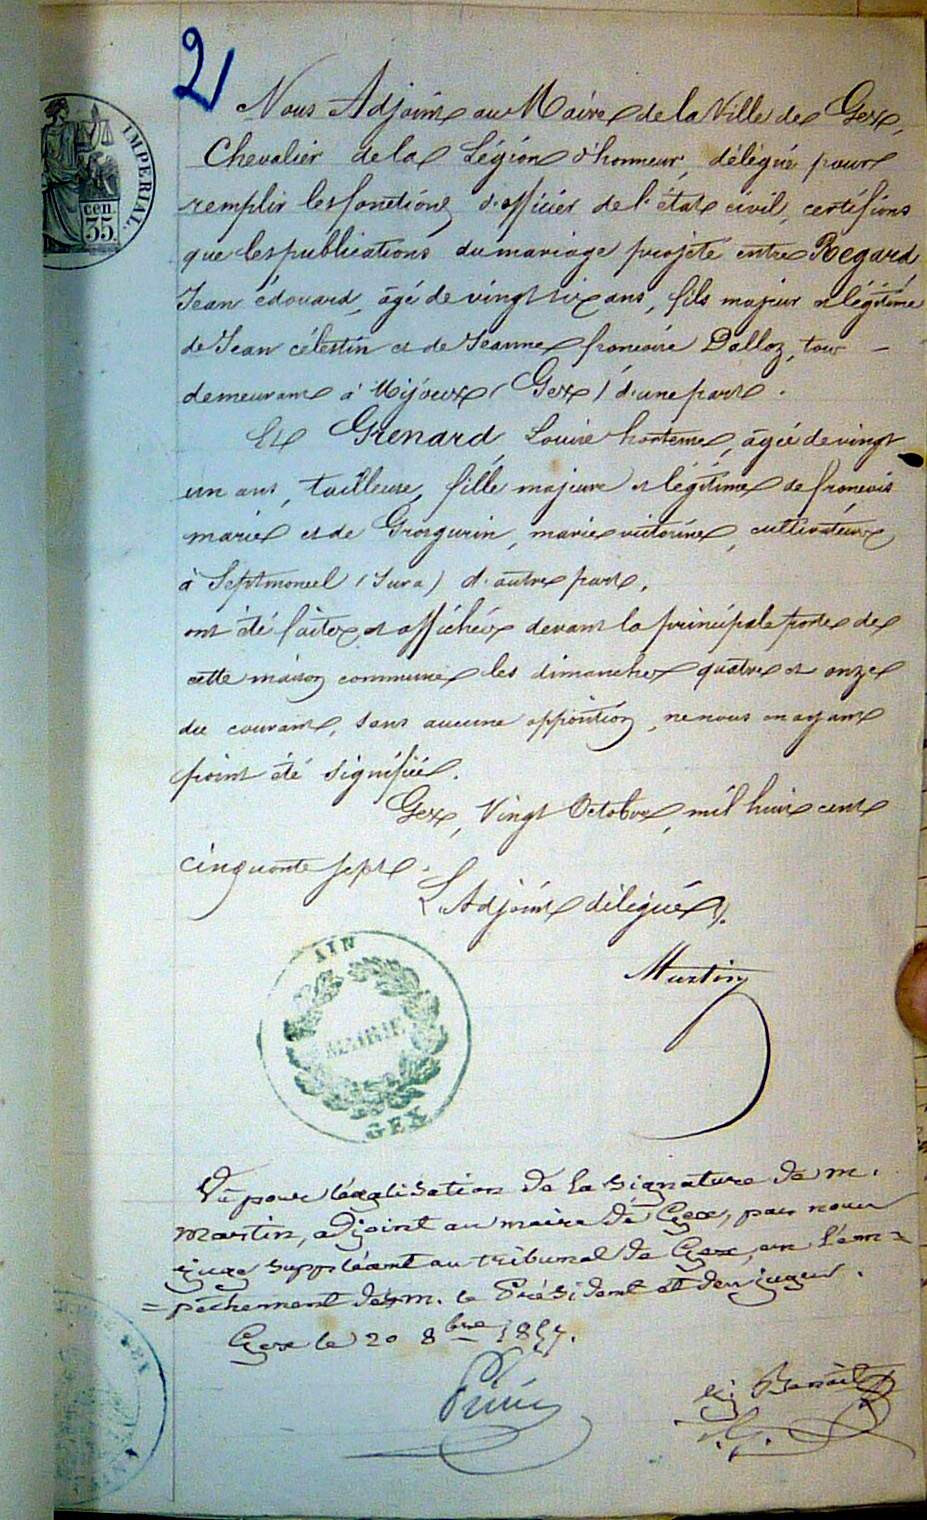 2
IMPERIAL.
cen.
35.
Nous Adjoint au Maire de la Ville de Gex,
Chevalier de la Légion d'honneur, délégué pour
remplir les fonctions d'officier de l'état civil, certifions
que les publications du mariage projeté entre Regard,
Jean édouard, âgé de vingt six ans, fils majeur et légitime
de Jean célestin et de Jeanne françoise Dalloz, tous
demeurant à Mijoux (Gex) d'une part.
Et Grenard, Louise hortense, âgée de vingt
un ans, tailleuse, fille majeure et légitime de françois
marie et de Grosgurin, marie victorine, cultivateurs
à Septmoncel (Jura) d'autre part,
ont été faites et affichées devant la principale porte de
cette maison commune les dimanches quatre et onze
du courant, sans aucune opposition, ne nous en ayant
point été signifiée.
Gex, Vingt Octobre, mil huit cent
cinquante sept.
L'Adjoint délégué,
Martin
AIN
MAIRIE
GEX
Vu pour légalisation de la signature de m.
martin, adjoint au maire de Gex, par nous
juge suppléant au tribunal de Gex, en l'em=
=pêchement de m. le Président et des juges.
Gex le 20 8bre 1857.
Benoit